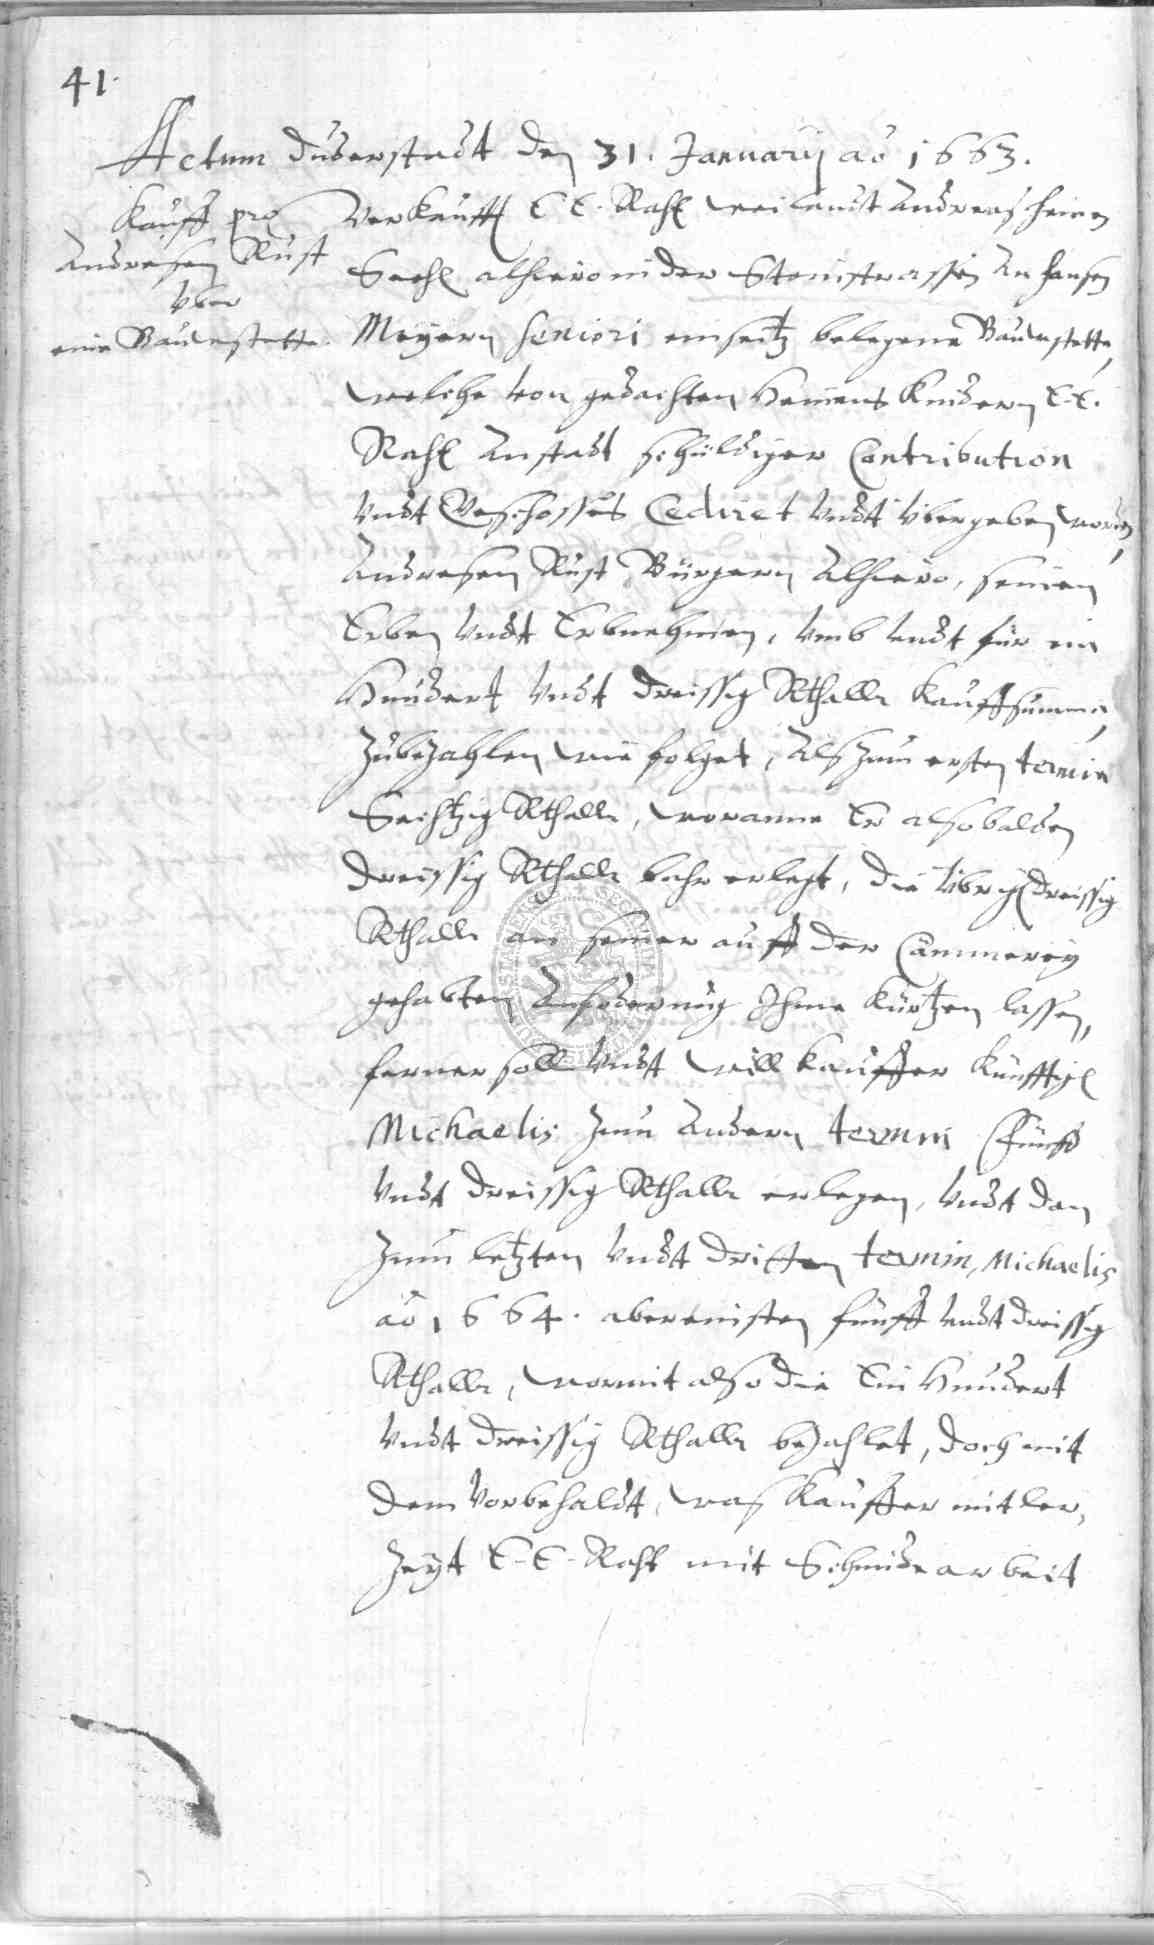 41.
Actum Duderstadt den 31. Januarij ao 1663.
Kauff pro
Andresen Rust
vber
eine Bauwstette.
Verkaufft E E. Raht weilandt Andreas Heinen
Seehl alhiero in der Steinstrassen an Hansen
Meyern Seniori einseitz belegene Bauwstette,
welche von gedachten Heinens Kindern E. E.
Raht anstadt schüldiger Contribution
vndt Geschosses Cediret vndt vbergeben worden,
Andresen Rust Bürgern alhiero, seinen
Erben vndt Erbnehmen, vmb vndt für ein
Hundert vndt dreissig Rthallr Kauffsumma,
Zubezahlen wie folget, Alß zum ersten termin
Sechtzig Rthallr, woranne Er alsobalden
dreissig Rthallr bahr erlegt, die vbrige dreissig
Rthallr an seiner auff der Cämmerey
gehabten Anforderung Ihme Kürtzen lassen,
ferner soll vndt will Kauffer Künfftige
Michaelis Zum Andern termin Fünff
vndt dreissig Rthallr erlegen, vndt dan
Zum letzten vndt dritten termin, Michaelis
ao 1664. abereinsten fünff vndt dreissig
Rthallr, wormit also die Ein Hundert
vndt dreissig Rthallr bezahlet, doch mit
dem Vorbehaldt, waß Kauffer mitler,
Zeyt E. E. Raht mit Schmidearbeit